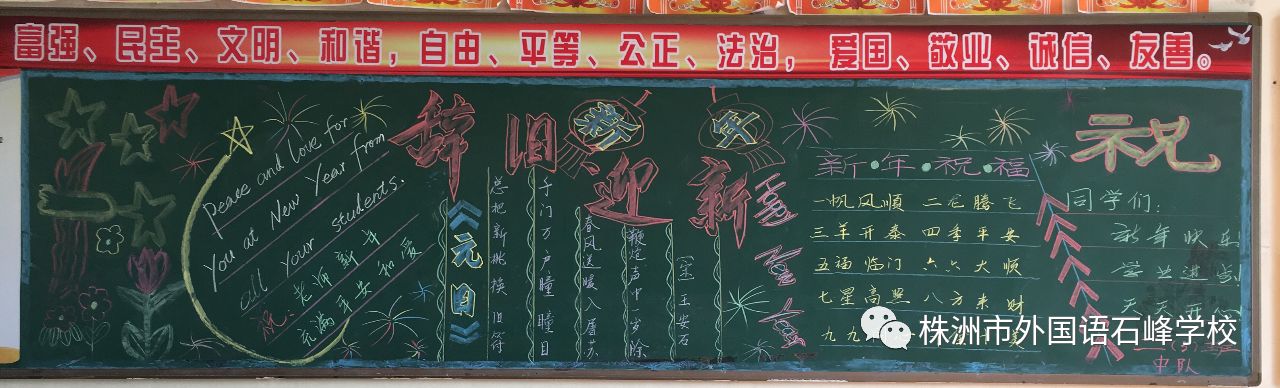 富强、民主、文明、和谐，自由、平等、公正、法治，爱国、敬业、诚信、友善。
Peace and love for
you at New Year from
all your students.
祝：老师新年
充满平安和爱
辞旧迎新
新年
《元旦》
(宋)王安石
鞭炮声中一岁除
春风送暖入屠苏
千门万户瞳瞳日
总把新桃换旧符
新·年·祝·福
一帆风顺 二龙腾飞
三羊开泰 四季平安
五福临门 六六大顺
七星高照 八方来财
九九
祝
同学们：
新年快乐
学业进步
天天开
中队
株洲市外国语石峰学校